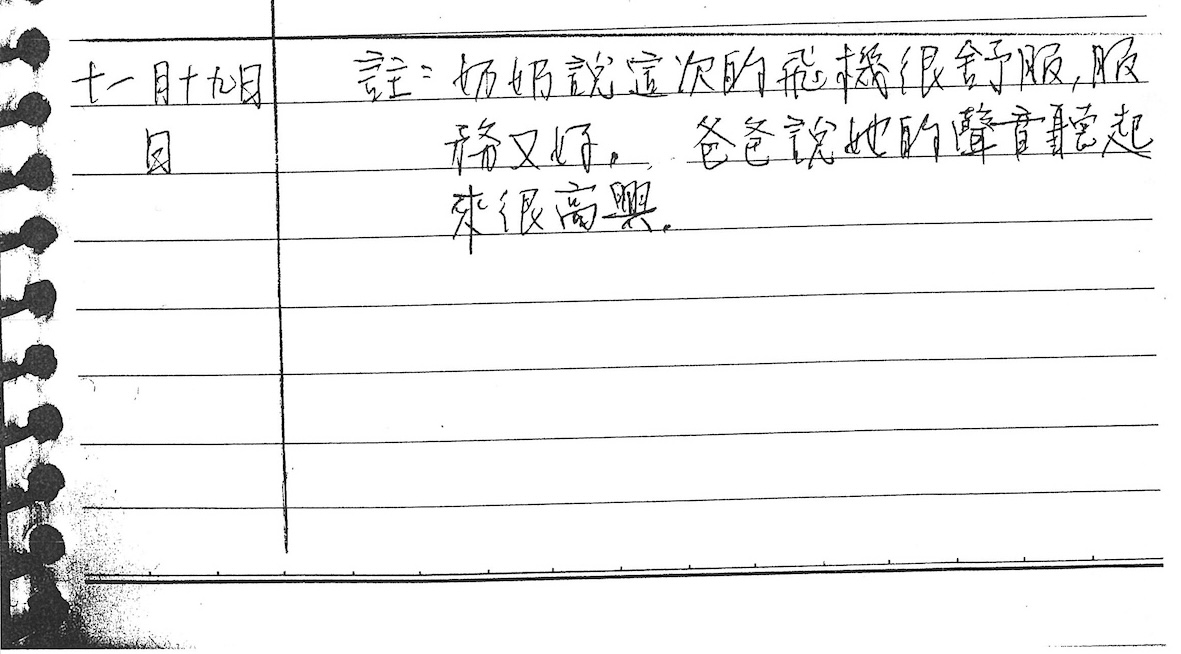 十一月十九日 註：奶奶說這次的飛機很舒服，服
日 務又好。 爸爸說她的聲音聽起
來很高興。